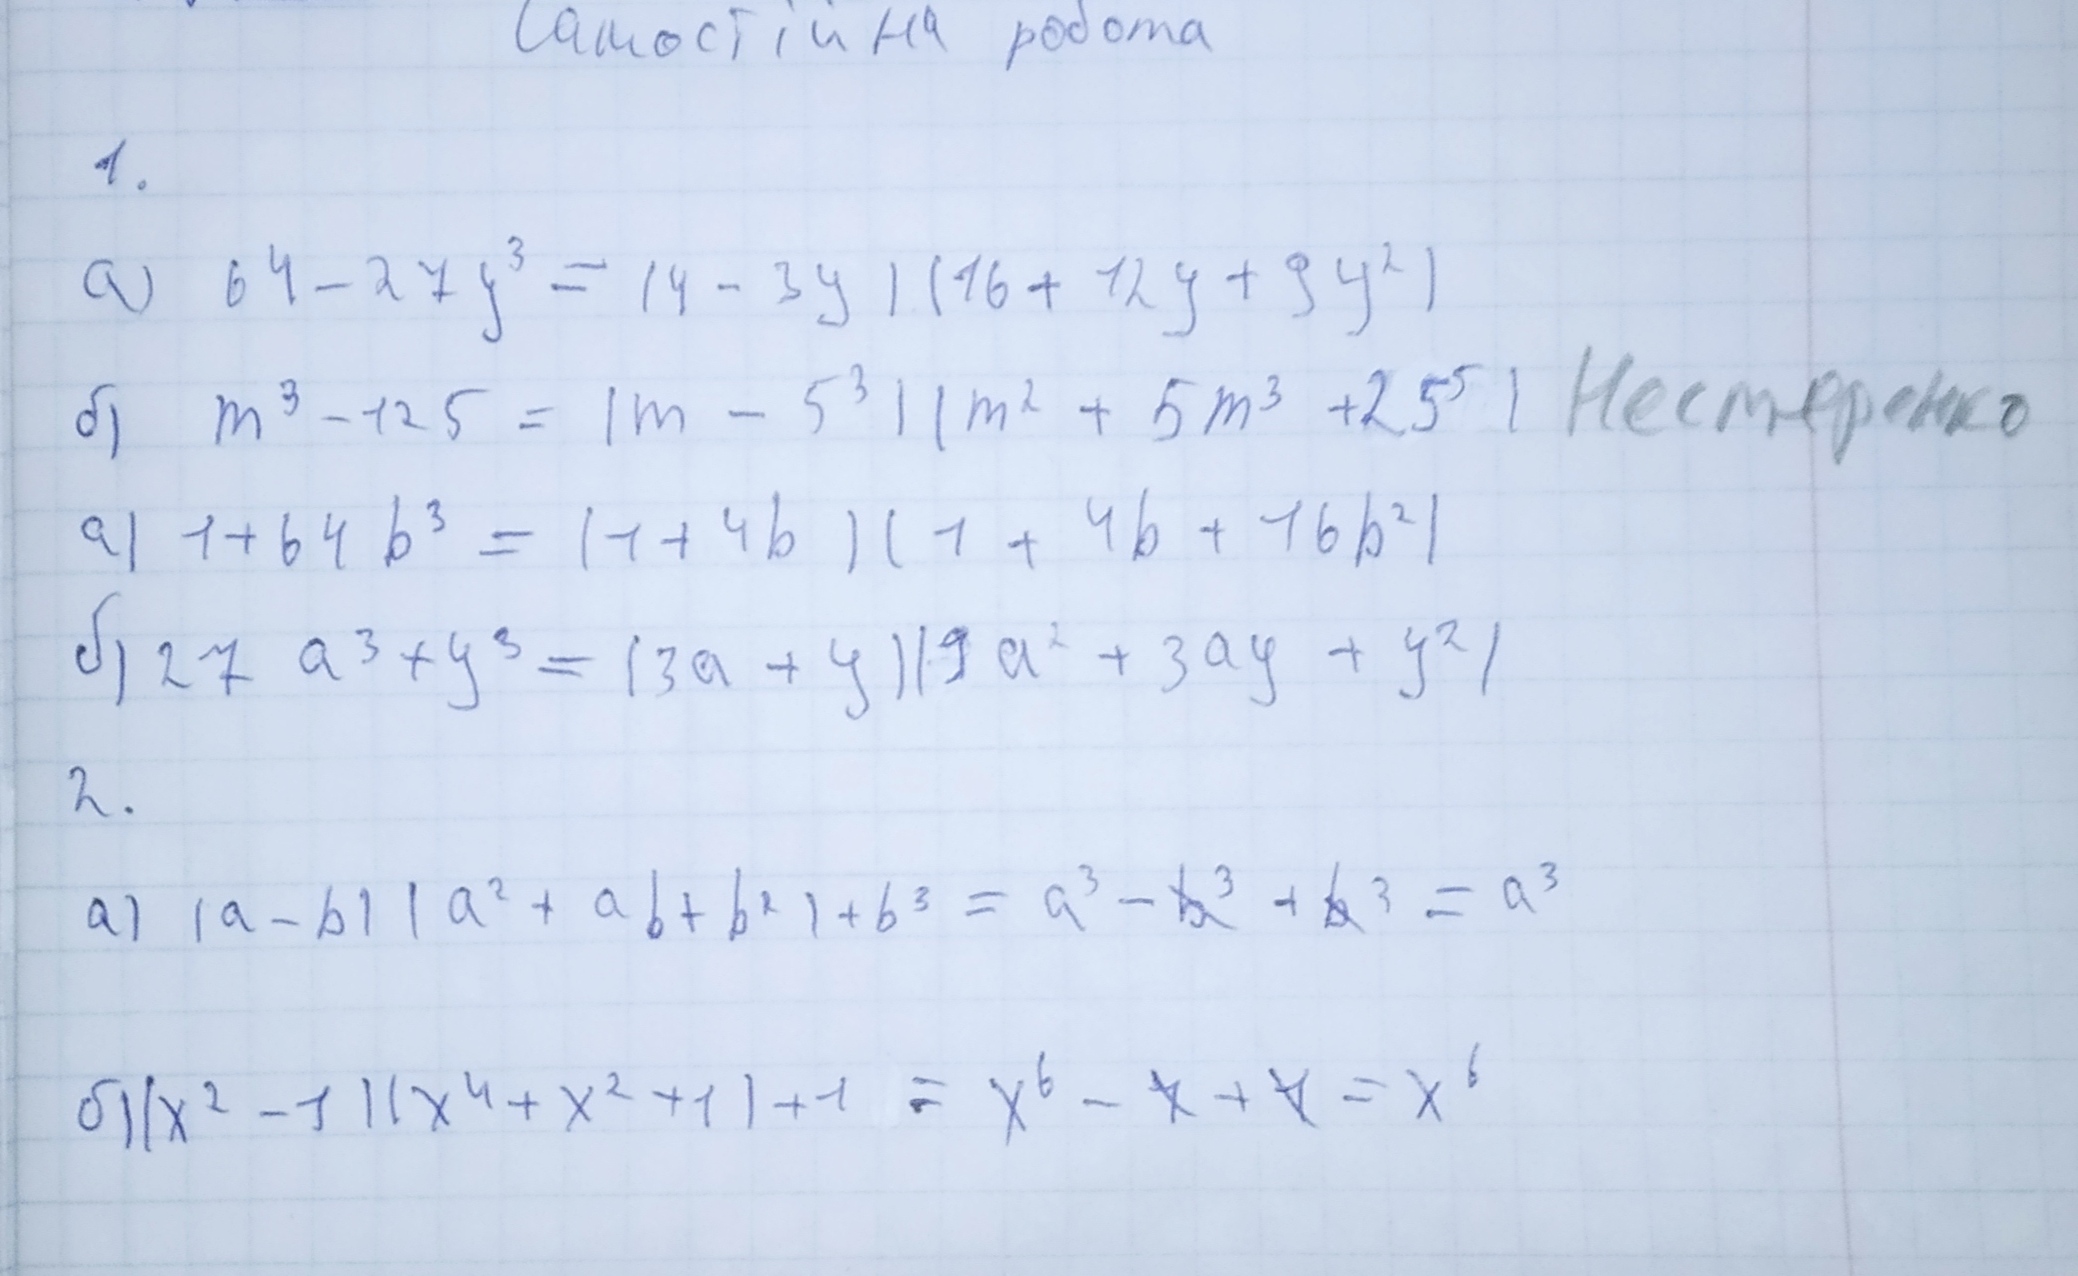 Самостійна робота
1.
а) 64 - 27y³ = (4 - 3y)(16 + 12y + 9y²)
б) m³ - 125 = (m - 5³)(m² + 5m³ + 25⁵) Нестеренко
а) 1 + 64b³ = (1 + 4b)(1 + 4b + 16b²)
б) 27a³ + y³ = (3a + y)(9a² + 3ay + y²)
2.
а) (a - b)(a² + ab + b²) + b³ = a³ - b³ + b³ = a³
б) (x² - 1)(x⁴ + x² + 1) + 1 = x⁶ - 1 + 1 = x⁶